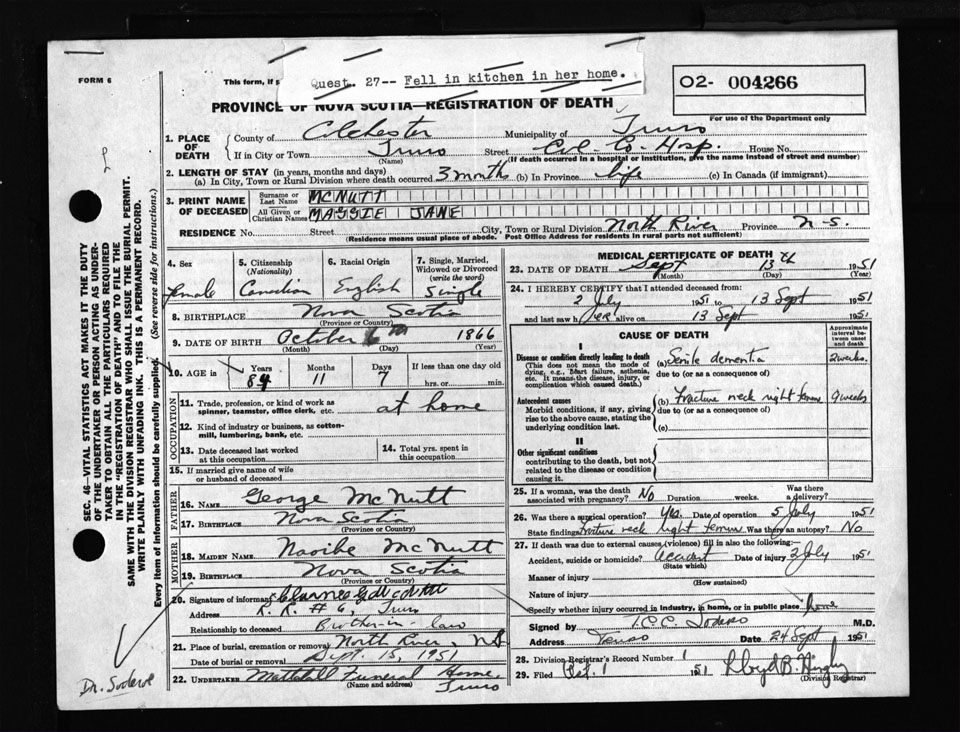 FORM 6
This form, if s
Quest. 27-- Fell in kitchen in her home.
O2- 004266
For use of the Department only
PROVINCE OF NOVA SCOTIA—REGISTRATION OF DEATH
1. PLACE OF DEATH
County of Colchester Municipality of Truro
If in City or Town Truro Street Col. Co. Hosp. House No.
(Name) (If death occurred in a hospital or institution, give the name instead of street and number)
2. LENGTH OF STAY (in years, months and days)
(a) In City, Town or Rural Division where death occurred 3 months (b) In Province life (c) In Canada (if immigrant)
3. PRINT NAME OF DECEASED
Surname or Last Name MCNUTT
All Given or Christian Names MAGGIE JANE
RESIDENCE No. Street City, Town or Rural Division North River Province N-S.
(Residence means usual place of abode. Post Office Address for residents in rural parts not sufficient)
4. Sex female
5. Citizenship (Nationality) Canadian
6. Racial Origin English
7. Single, Married, Widowed or Divorced (write the word) Single
8. BIRTHPLACE Nova Scotia
(Province or Country)
9. DATE OF BIRTH October 6th 1866
(Month) (Day) (Year)
10. AGE in Years 84 Months 11 Days 7 If less than one day old hrs. or min.
OCCUPATION
11. Trade, profession, or kind of work as spinner, teamster, office clerk, etc. at home
12. Kind of industry or business, as cotton-mill, lumbering, bank, etc.
13. Date deceased last worked at this occupation
14. Total yrs. spent in this occupation
15. If married give name of wife or husband of deceased
FATHER
16. NAME George McNutt
17. BIRTHPLACE Nova Scotia
(Province or Country)
MOTHER
18. MAIDEN NAME McNutt
19. BIRTHPLACE Nova Scotia
(Province or Country)
20. Signature of informant
Address R. R. # 6, Truro
Relationship to deceased Brother-in-law
21. Place of burial, cremation or removal North River, N.S.
Date of burial or removal Sept. 15, 1951
22. UNDERTAKER Mattatall Funeral Home, Truro
(Name and address)
MEDICAL CERTIFICATE OF DEATH
23. DATE OF DEATH Sept 13th 1951
(Month) (Day) (Year)
24. I HEREBY CERTIFY that I attended deceased from:
2 July 1951 to 13 Sept 1951
and last saw her alive on 13 Sept 1951
CAUSE OF DEATH
Approximate interval between onset and death
I
Disease or condition directly leading to death
(This does not mean the mode of dying, e.g., heart failure, asthenia, etc. It means the disease, injury, or complication which caused death.)
(a) Senile dementia 2 weeks.
due to (or as a consequence of)
Antecedent causes
Morbid conditions, if any, giving rise to the above cause, stating the underlying condition last.
(b) Fracture neck right femur 9 weeks
due to (or as a consequence of)
(c)
II
Other significant conditions
contributing to the death, but not related to the disease or condition causing it.
25. If a woman, was the death associated with pregnancy? No Duration weeks. Was there a delivery?
26. Was there a surgical operation? Yes. Date of operation 5 July 1951
State findings fracture neck right femur Was there an autopsy? No
27. If death was due to external causes (violence) fill in also the following:—
Accident, suicide or homicide? Accident Date of injury 2 July 1951
(State which)
Manner of injury
(How sustained)
Nature of injury
Specify whether injury occurred in industry, in home, or in public place home
Signed by M.D.
Address Truro Date 24 Sept 1951
28. Division Registrar's Record Number 1
29. Filed Oct. 1 1951 Lloyd B.
(Division Registrar)
SEC. 46—VITAL STATISTICS ACT MAKES IT THE DUTY OF THE UNDERTAKER OR PERSON ACTING AS UNDERTAKER TO OBTAIN ALL THE PARTICULARS REQUIRED IN THE "REGISTRATION OF DEATH" AND TO FILE THE SAME WITH THE DIVISION REGISTRAR WHO SHALL ISSUE THE BURIAL PERMIT.
WRITE PLAINLY WITH UNFADING INK. THIS IS A PERMANENT RECORD.
Every item of information should be carefully supplied. (See reverse side for instructions.)
Dr.